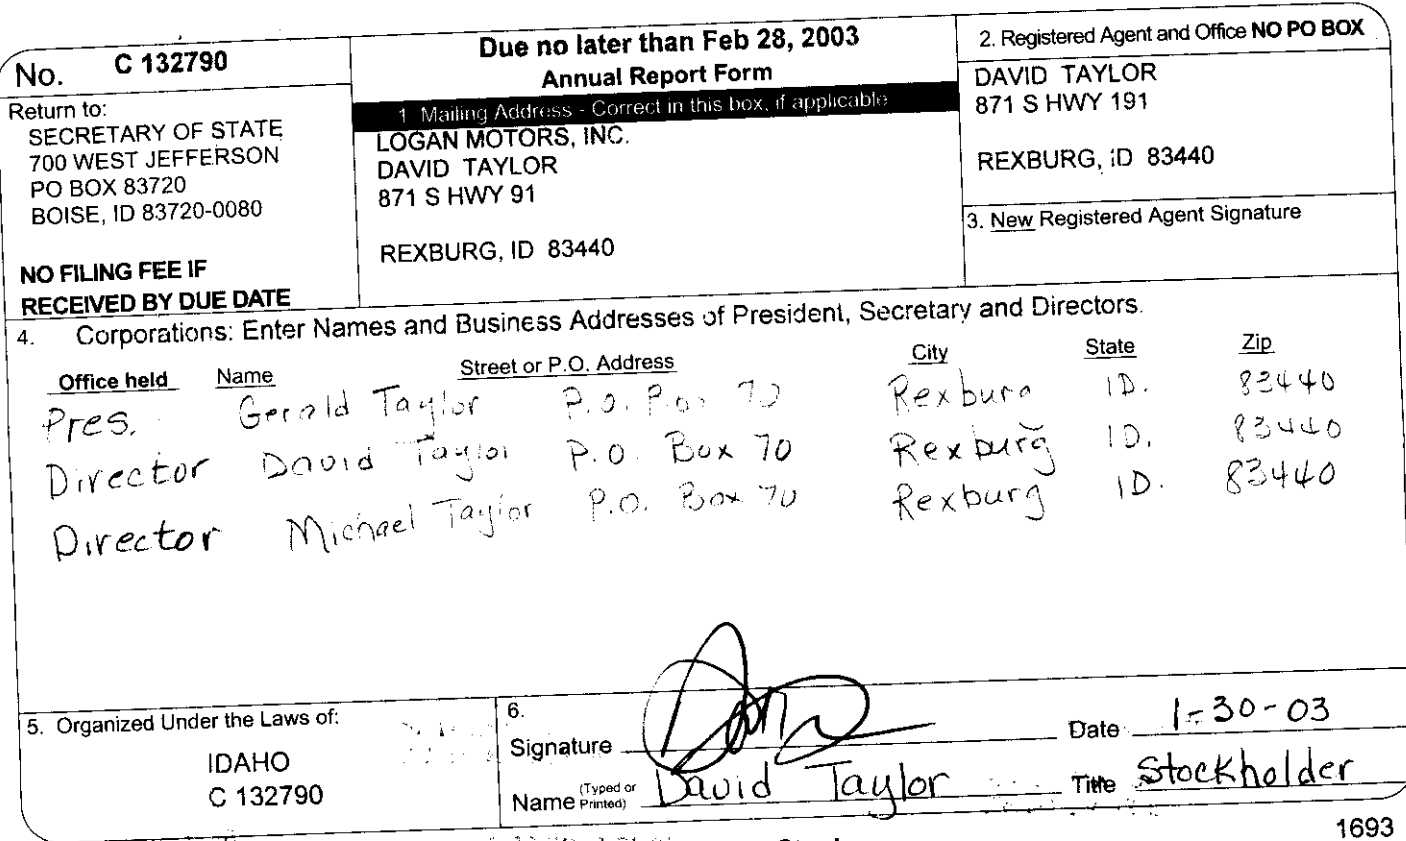 No. C 132790
Return to:
SECRETARY OF STATE
700 WEST JEFFERSON
PO BOX 83720
BOISE, ID 83720-0080
NO FILING FEE IF
RECEIVED BY DUE DATE
Due no later than Feb 28, 2003
Annual Report Form
1. Mailing Address - Correct in this box, if applicable
LOGAN MOTORS, INC.
DAVID TAYLOR
871 S HWY 91
REXBURG, ID 83440
2. Registered Agent and Office NO PO BOX
DAVID TAYLOR
871 S HWY 191
REXBURG, ID 83440
3. New Registered Agent Signature
4. Corporations: Enter Names and Business Addresses of President, Secretary and Directors.
Office held Name Street or P.O. Address City State Zip
Pres. Gerald Taylor P.O. Box 70 Rexburg ID. 83440
Director David Taylor P.O. Box 70 Rexburg ID. 83440
Director Michael Taylor P.O. Box 70 Rexburg ID. 83440
5. Organized Under the Laws of:
IDAHO
C 132790
6.
Signature Date 1-30-03
Name (Typed or Printed) David Taylor Title Stockholder
1693